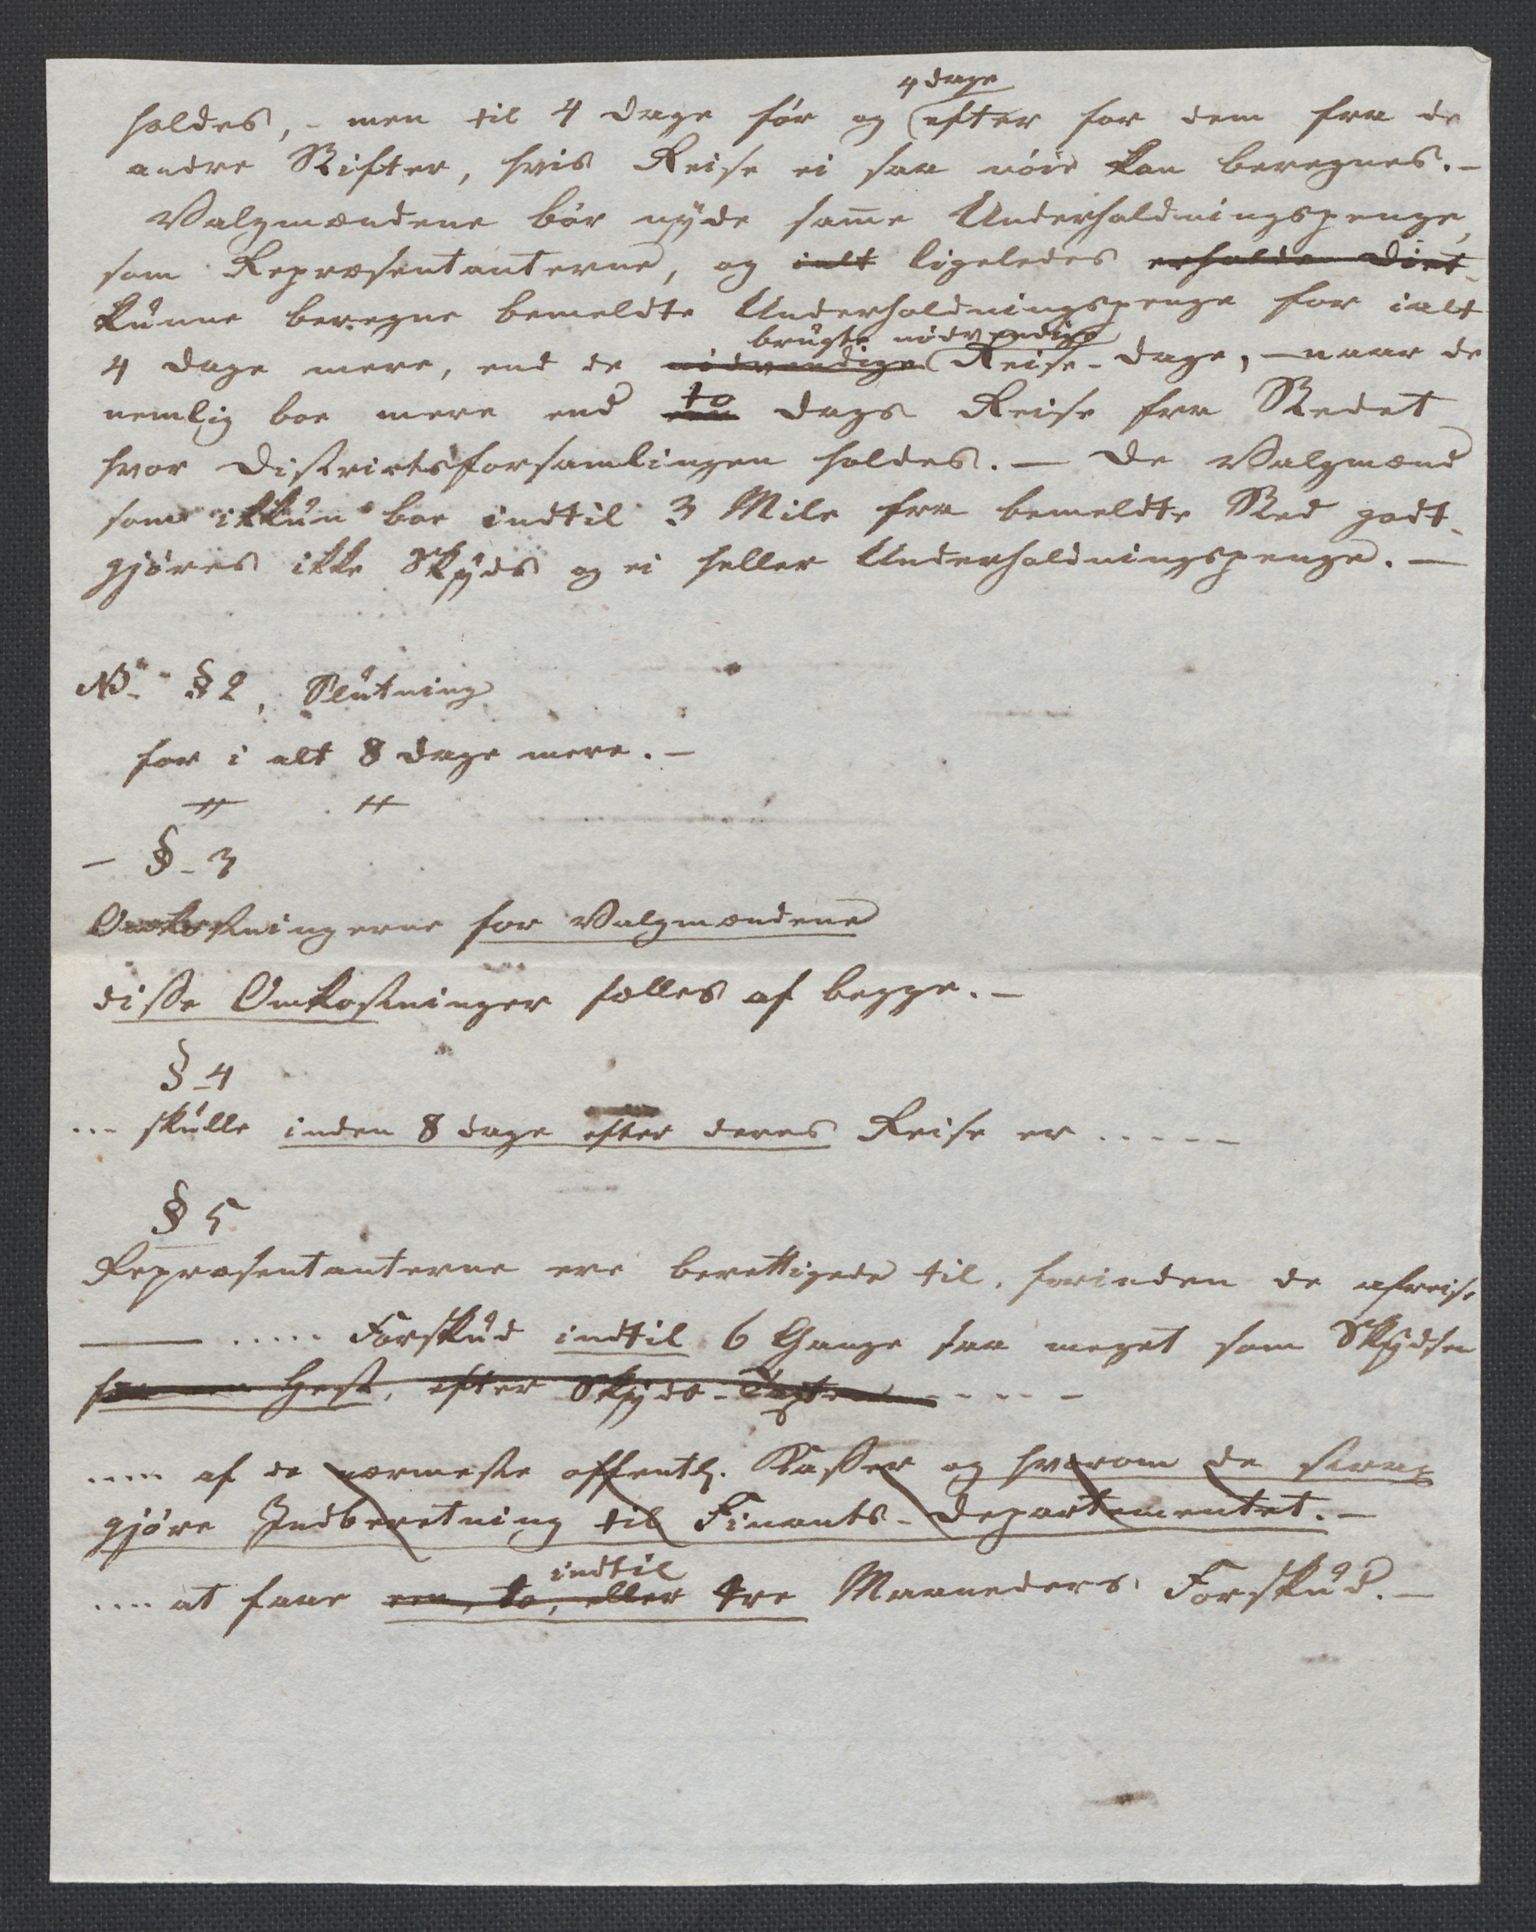 4 dage
holdes, - men til 4 Dage før og efter for dem fra de
andre Stifter, hvis Reise ei saa nöie kan beregnes. -
Valgmændene bör nyde same Underholdningspenge,
som Repræsentanterne, og ialt ligeledes erholde Diet-
kunne beregne bemeldte Underholdningspenge for ialt
brugte nödvendige
4 Dage mere, end de nödvendige Reise-Dage, - naar de
to
nemlig boe mere end een Dags Reise fra Stedet
hvor Districtsforsamlingen holdes. - De Valgmænd
som ikkun boe indtil 3 Mile fra bemeldte Sted godt-
gjöres ikke Skyds og ei heller Underholdningspenge. -
NB. § 2, Slutning
for i alt 8 Dage mere. -
- § - 3
Omkostningerne for Valgmændene
disse Omkostninger fælles af begge. -
§ - 4
... skulle inden 8 dage efter deres Reise er .....
§ 5
Repræsentanterne ere berettigede til, forinden de afreise
..... Forskud indtil 6 Gange saa meget som Skydsen
for een Hest, efter Skyds-Taxten - - - -
.... af de nærmeste offentl. Kasser og hvorom de strax
gjöre Indberetning til Finants-Departementet. -
indtil
.... at faae een, to, eller tre Maaneders Forskud. -